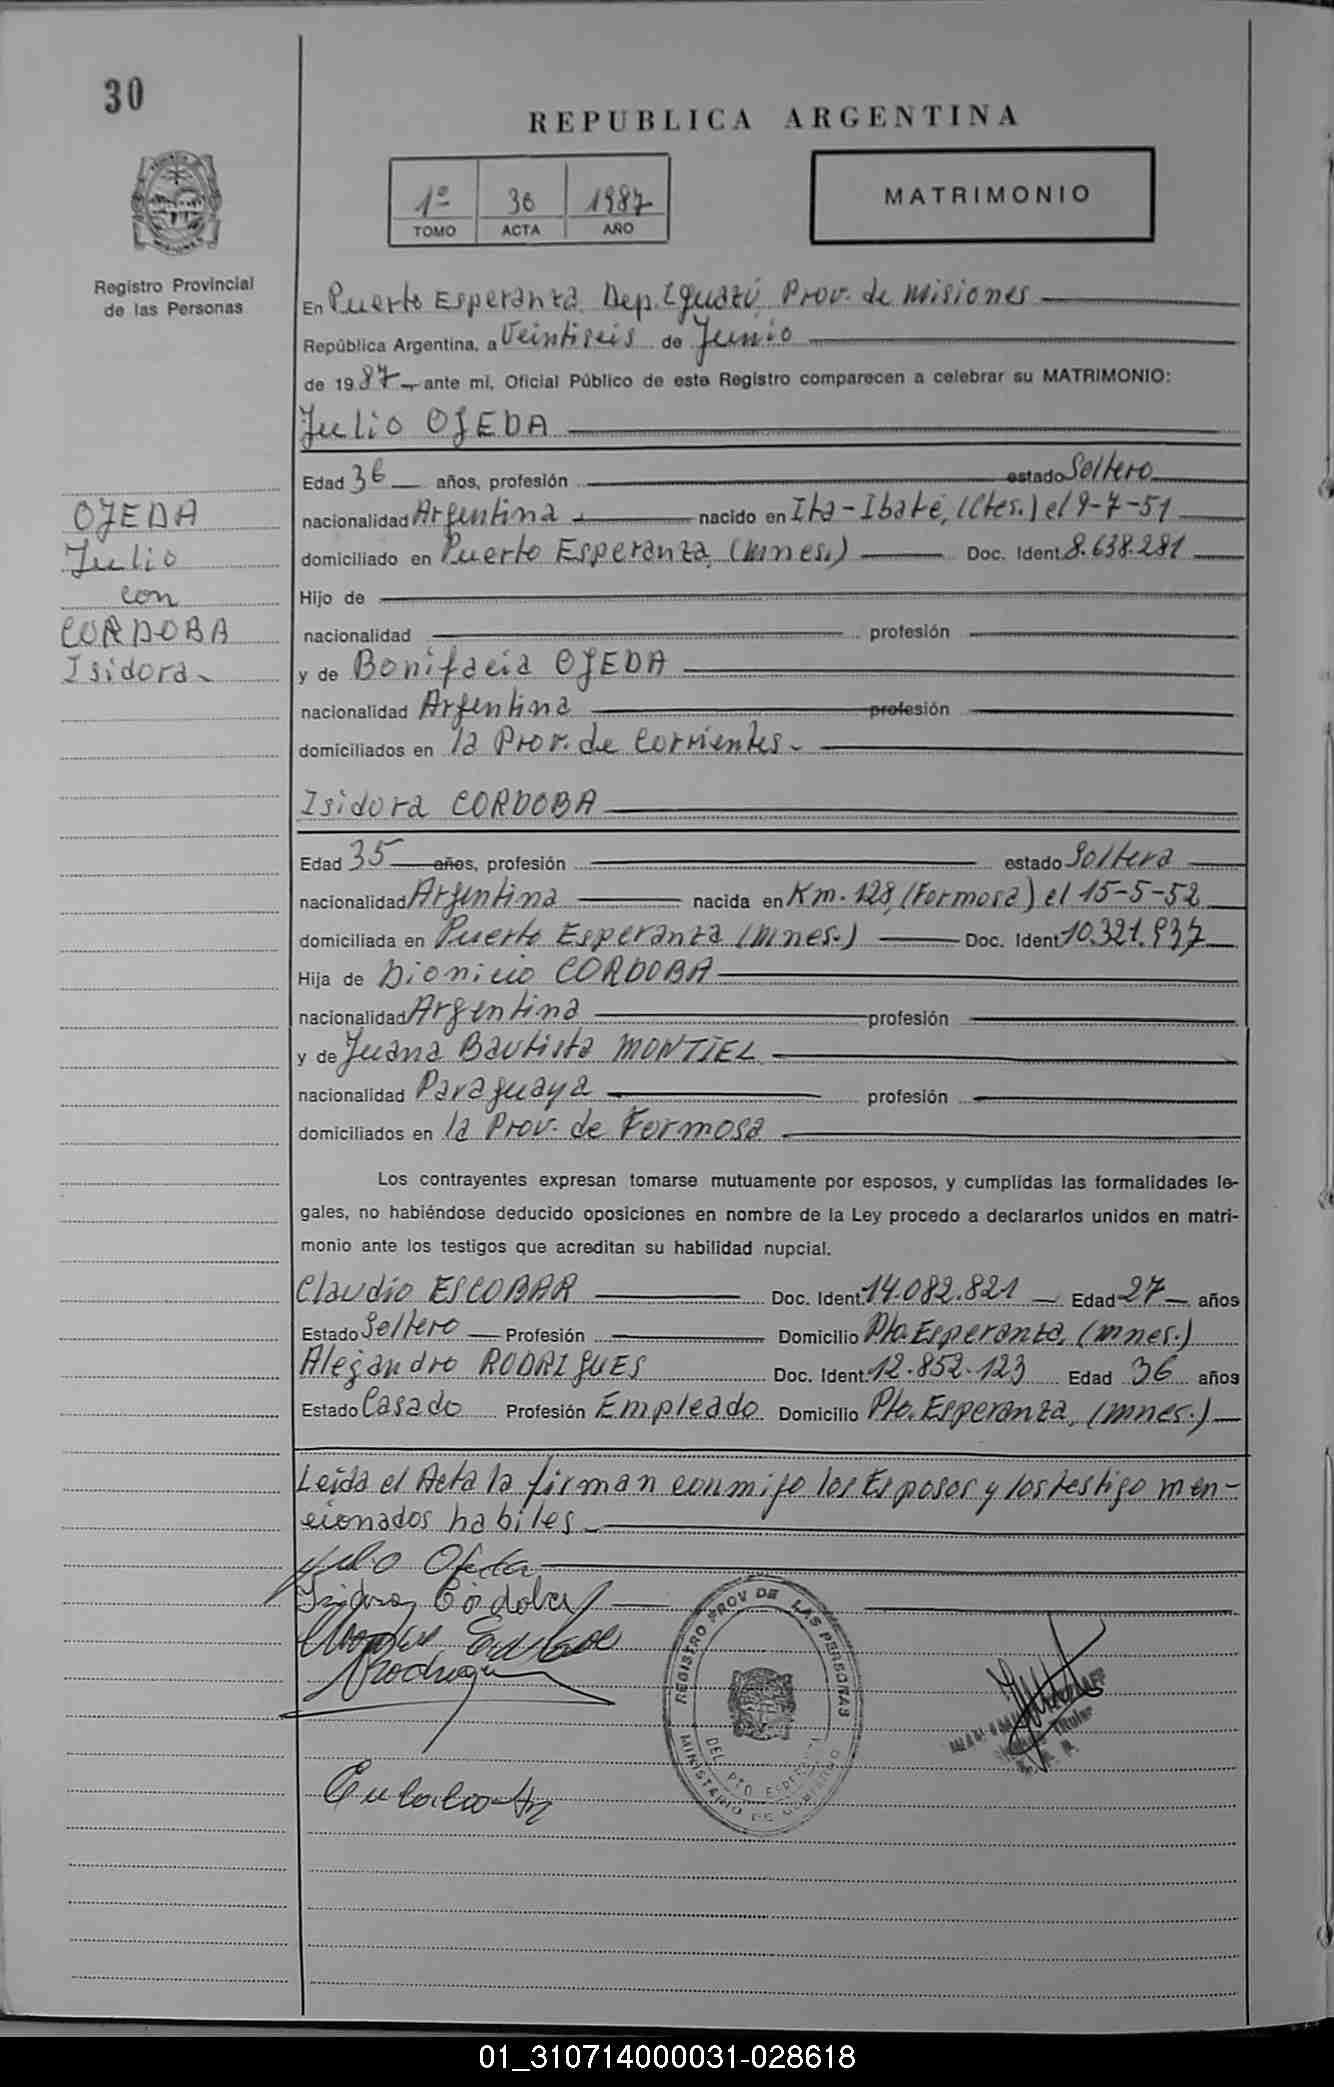 30
REPUBLICA ARGENTINA
1º 30 1987
TOMO ACTA AÑO
MATRIMONIO
Registro Provincial
de las Personas
En Puerto Esperanza, Dep. Iguazú, Prov. de Misiones
República Argentina, a Veintiseis de Junio
de 1987 ante mí, Oficial Público de este Registro comparecen a celebrar su MATRIMONIO:
Julio OJEDA
Edad 36 años, profesión estado Soltero
nacionalidad Argentina nacido en Ita-Ibaté, (Ctes.) el 9-7-51
domiciliado en Puerto Esperanza, (Mnes.) Doc. Ident. 8.638.281
Hijo de
nacionalidad profesión
y de Bonifacia OJEDA
nacionalidad Argentina profesión
domiciliados en la Prov. de Corrientes.
OJEDA
Julio
con
CORDOBA
Isidora
Isidora CORDOBA
Edad 35 años, profesión estado Soltera
nacionalidad Argentina nacida en Km. 128, (Formosa) el 15-5-52
domiciliada en Puerto Esperanza (Mnes.) Doc. Ident. 10.321.937
Hija de Dionicio CORDOBA
nacionalidad Argentina profesión
y de Juana Bautista MONTIEL
nacionalidad Paraguaya profesión
domiciliados en la Prov. de Formosa
Los contrayentes expresan tomarse mutuamente por esposos, y cumplidas las formalidades le-
gales, no habiéndose deducido oposiciones en nombre de la Ley procedo a declararlos unidos en matri-
monio ante los testigos que acreditan su habilidad nupcial.
Claudio ESCOBAR Doc. Ident. 14.082.821 Edad 27 años
Estado Soltero Profesión Domicilio Pto. Esperanza, (Mnes.)
Alejandro RODRIGUES Doc. Ident. 12.852.123 Edad 36 años
Estado Casado Profesión Empleado Domicilio Pto. Esperanza, (Mnes.)
Leida el Acta la firman conmigo los Esposos y los testigo men-
cionados habiles.
Julio Ojeda
Isidora Cordoba
Rodrigue
REGISTRO PROV DE LAS PERSONAS
DEL PTO ESPERANZA
MINISTERIO DE GOBIERNO
Titular
01_310714000031-028618